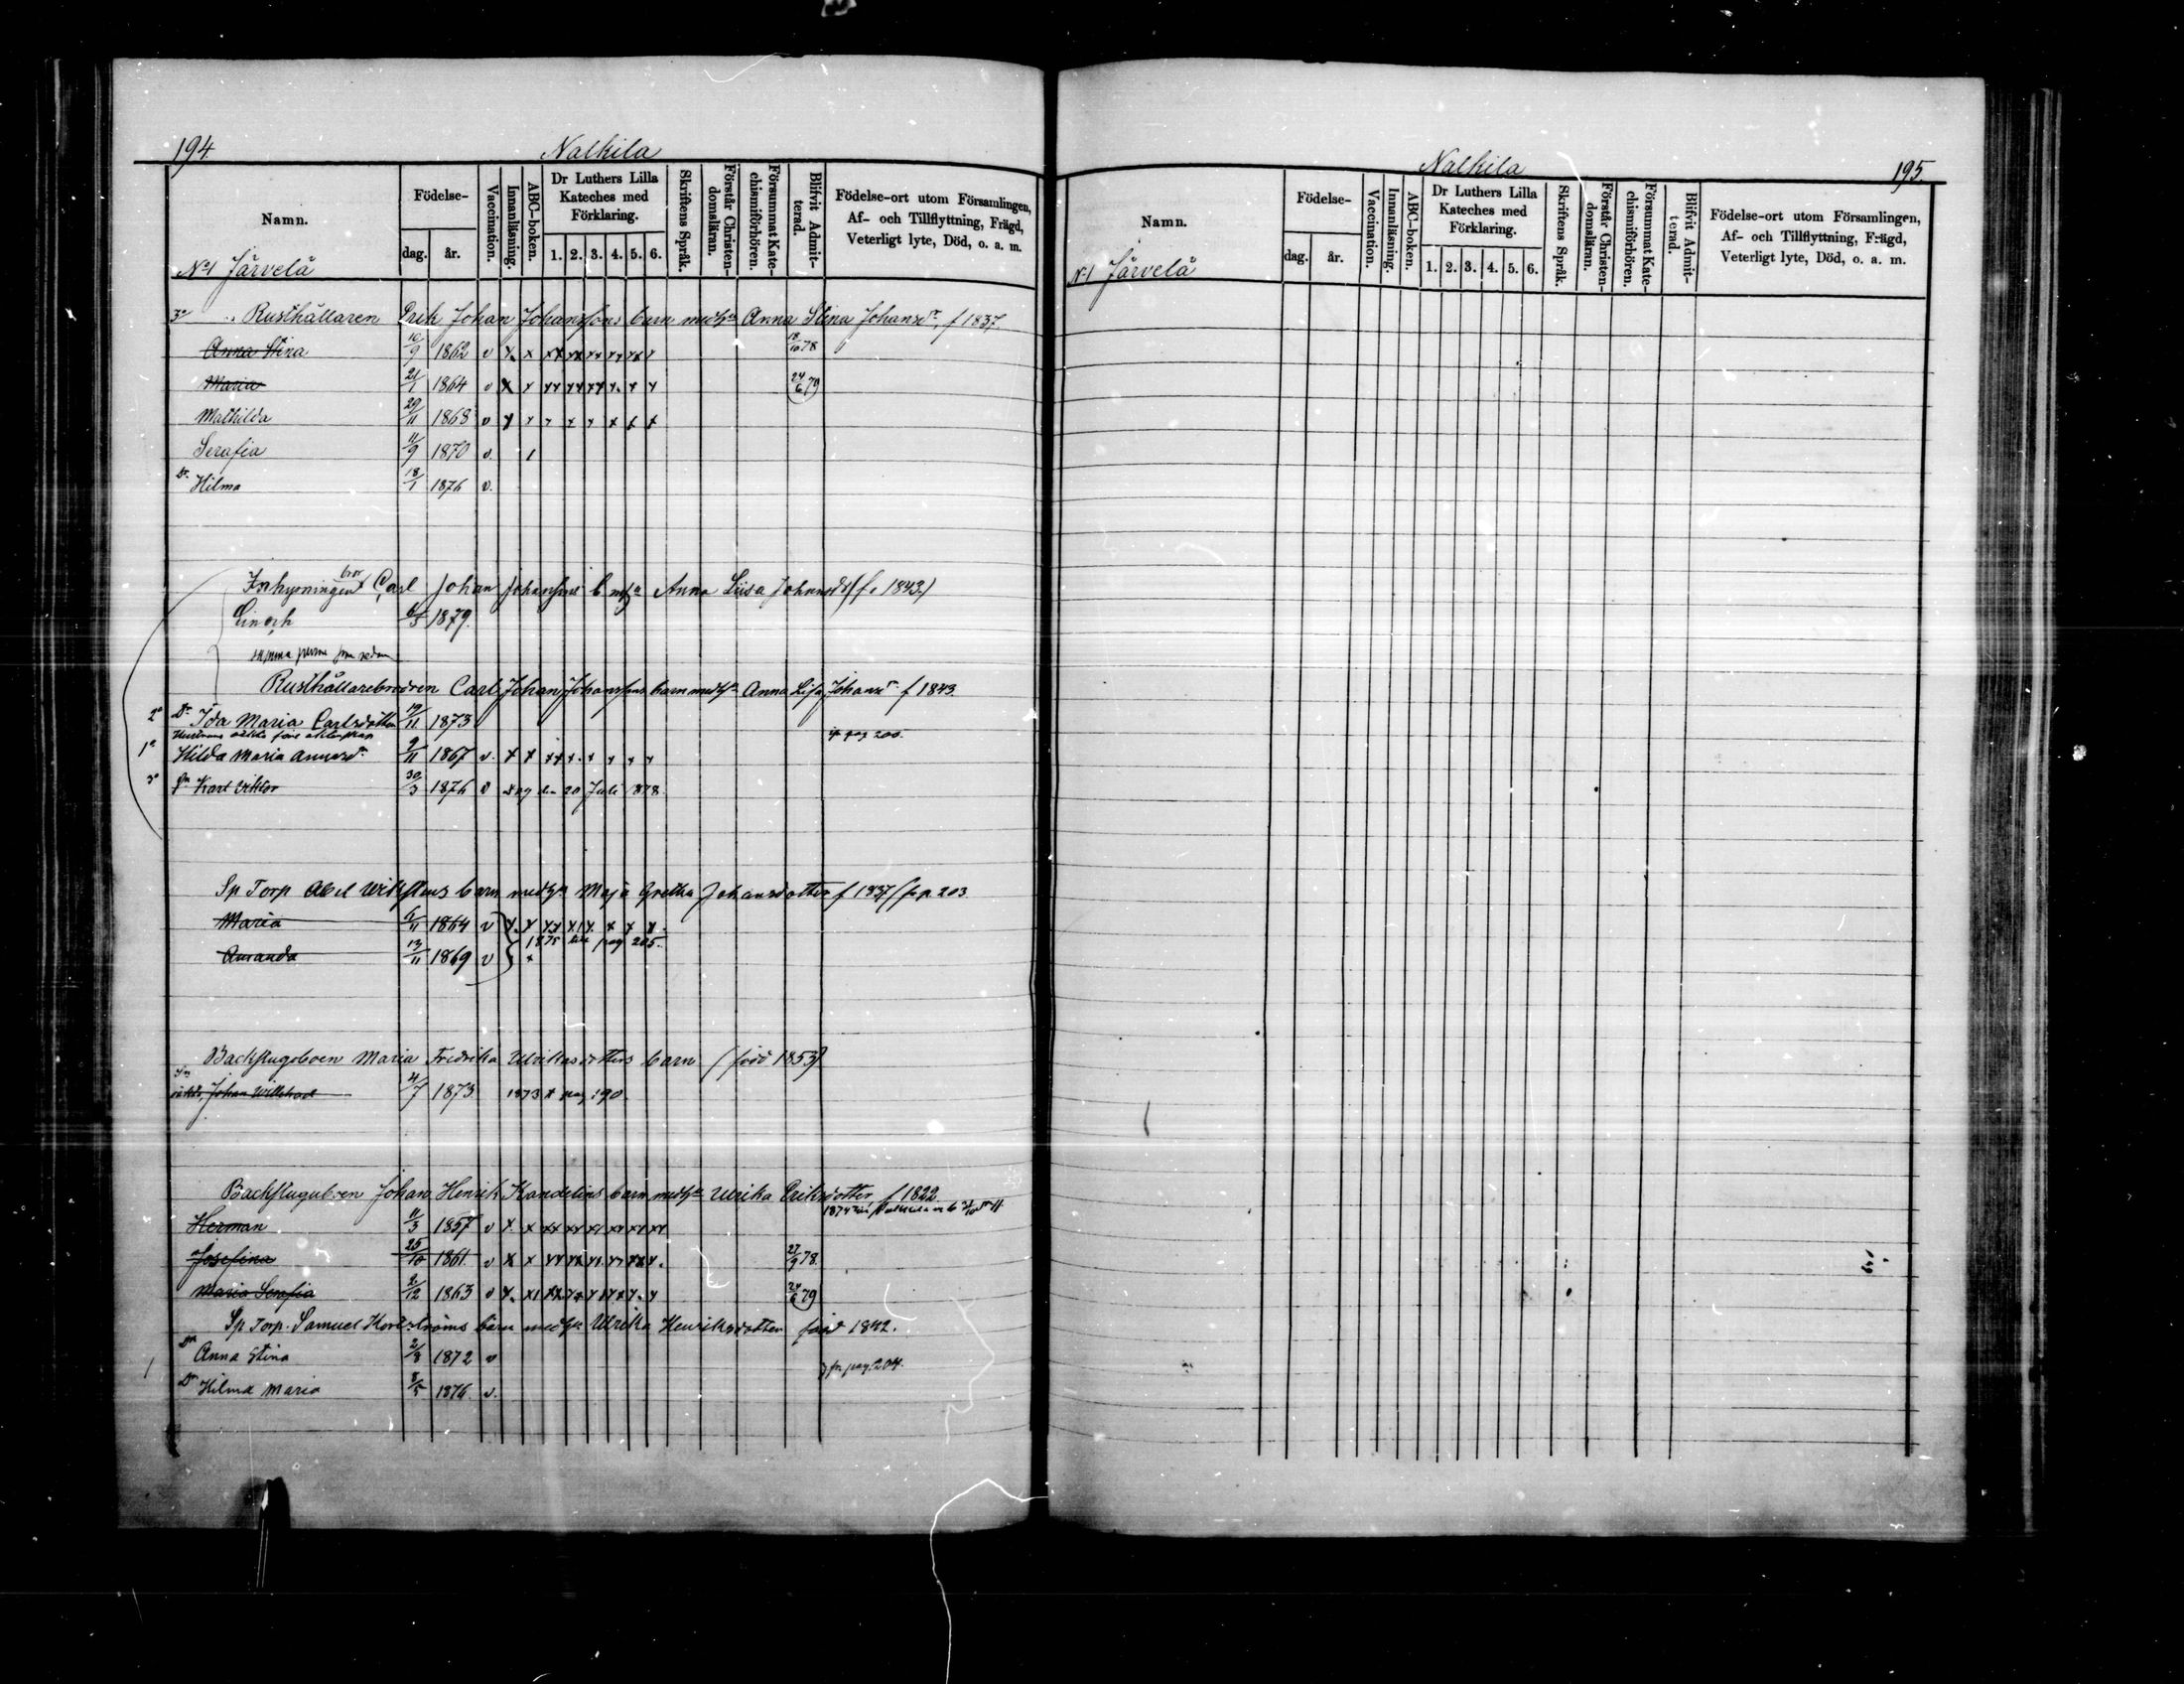 194. Nalkila
Namn. Födelse- dag. år. Vaccination. Innanläsning. ABC-boken. Dr Luthers Lilla Kateches med Förklaring. 1. 2. 3. 4. 5. 6. Skriftens Språk. Förstår Christen-domsläran. Försummat Kate-chismiförhören. Blifvit Admit-terad. Födelse-ort utom Församlingen, Af- och Tillflyttning, Frägd, Veterligt lyte, Död, o. a. m.
No 1 Järvelä
3o Rusthållaren Erik Johan Johanssons barn med h:u Anna Stina Johansdr, f 1837
Anna Stina 10/9 1862 v x x xx xx xx xx xx x 18/10 78
Maria 21/1 1864 v x x xx xx xx x x x 24/6 79
Mathilda 29/11 1868 v x x x x x x x x
Serafia 11/9 1870 v. 1
Dr. Hilma 18/1 1876 v.
Inhysningen bror Carl Johan Johanssons b Anna Liisa Johansdr (f. 1843)
1879.
samma person
Rusthållarebrodren Carl Johan Johanssons barn med h:u Anna Lisa Johansdr f 1843.
2o Dr Ida Maria Carlsdotter 19/11 1873
Hustruns oäkta före äktenskap pag 200.
1o Hilda Maria Annasdr 9/11 1867 v. x x xx x. x x x x
3o Sn Karl Viktor 30/3 1876 v den 20 Juli 1878.
Sp Torp Abel Wikstens barn med h:u Maja Gretha Johansdotter f 1837 (fr p. 203
Maria 6/11 1864 v x. x xx x1 x. x x x.
1875 pag 205.
Amanda 13/11 1869 v x
Backstugoboen Maria Fredrika Ulrikasdotters barn (född 1853)
Sn
oäkta, Johan Willehad 21/7 1873 1873 pag 190.
Backstuguboen Johan Henrik Kandelins barn med h:u Ulrika Eriksdotter, f 1822.
1874
Herman 11/3 1857 v x. x xx xx x1 xx xx xx
Josefina 25/10 1861. v x x xx xx x1. xx xx x. 27/9 78.
Maria Serafia 2/12 1863 v x. x1 xx x x xx x. x 24/6 79
Sp Torp. Samuel Kortströms barn med h:u Ulrika Henriksdotter född 1842.
Dr Anna Stina 2/8 1872 v fr pag. 204.
Dr Hilma Maria 8/5 1876. v.
Nalkila 195.
Namn. Födelse- dag. år. Vaccination. Innanläsning. ABC-boken. Dr Luthers Lilla Kateches med Förklaring. 1. 2. 3. 4. 5. 6. Skriftens Språk. Förstår Christen-domsläran. Försummat Kate-chismiförhören. Blifvit Admit-terad. Födelse-ort utom Församlingen, Af- och Tillflyttning, Frägd, Veterligt lyte, Död, o. a. m.
No 1 Järvelä